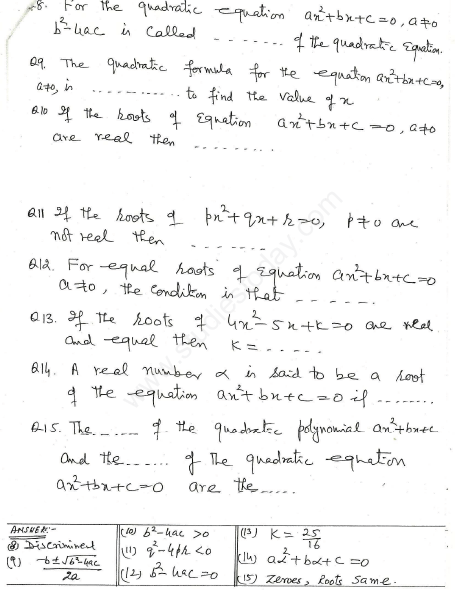 8. For the quadratic equation ax²+bx+c=0, a≠0
b²-4ac is called ........ of the quadratic Equation.
Q9. The quadratic formula for the equation ax²+bx+c=0,
a≠0, is ............ to find the value of x
Q10 If the roots of Equation ax²+bx+c=0, a≠0
are real then ........
Q11 If the roots of px²+qx+r=0, p≠0 are
not real then .......
Q12. For equal roots of Equation ax²+bx+c=0
a≠0, the condition is that -----
Q13. If the roots of 4x²-5x+k=0 are real
and equal then K=.....
Q14. A real number α is said to be a root
of the equation ax²+bx+c=0 if ........
Q15. The----- of the quadratic polynomial ax²+bx+c
and the...... of the quadratic equation
ax²+bx+c=0 are the.....
www.studiestoday.com
ANSWER:-
(8) Discriminent
(9) -b±√b²-4ac / 2a
(10) b²-4ac >0
(11) q²-4pr <0
(12) b²-4ac=0
(13) K = 25/16
(14) aα²+bα+c=0
(15) Zeroes, Roots Same.